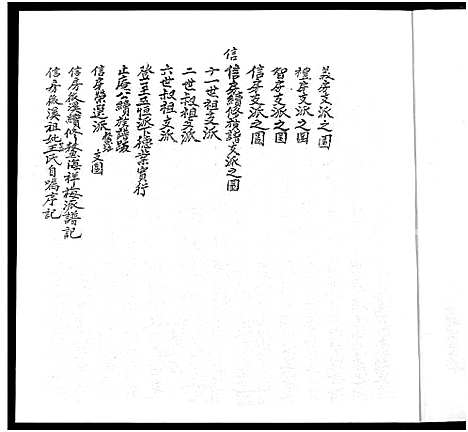 義房支派之圖
禮房支派之圖
智房支派之圖
信房支派之圖
信 信房續修族譜支派之圖
十一世祖支派
二世叔祖支派
六世叔祖支派
登五恒派下德業實行
止庵公續族譜跋
信房榮選派 支圖
信房後溪續修 海祥梅派譜記
信房後溪祖妣王氏自 序記